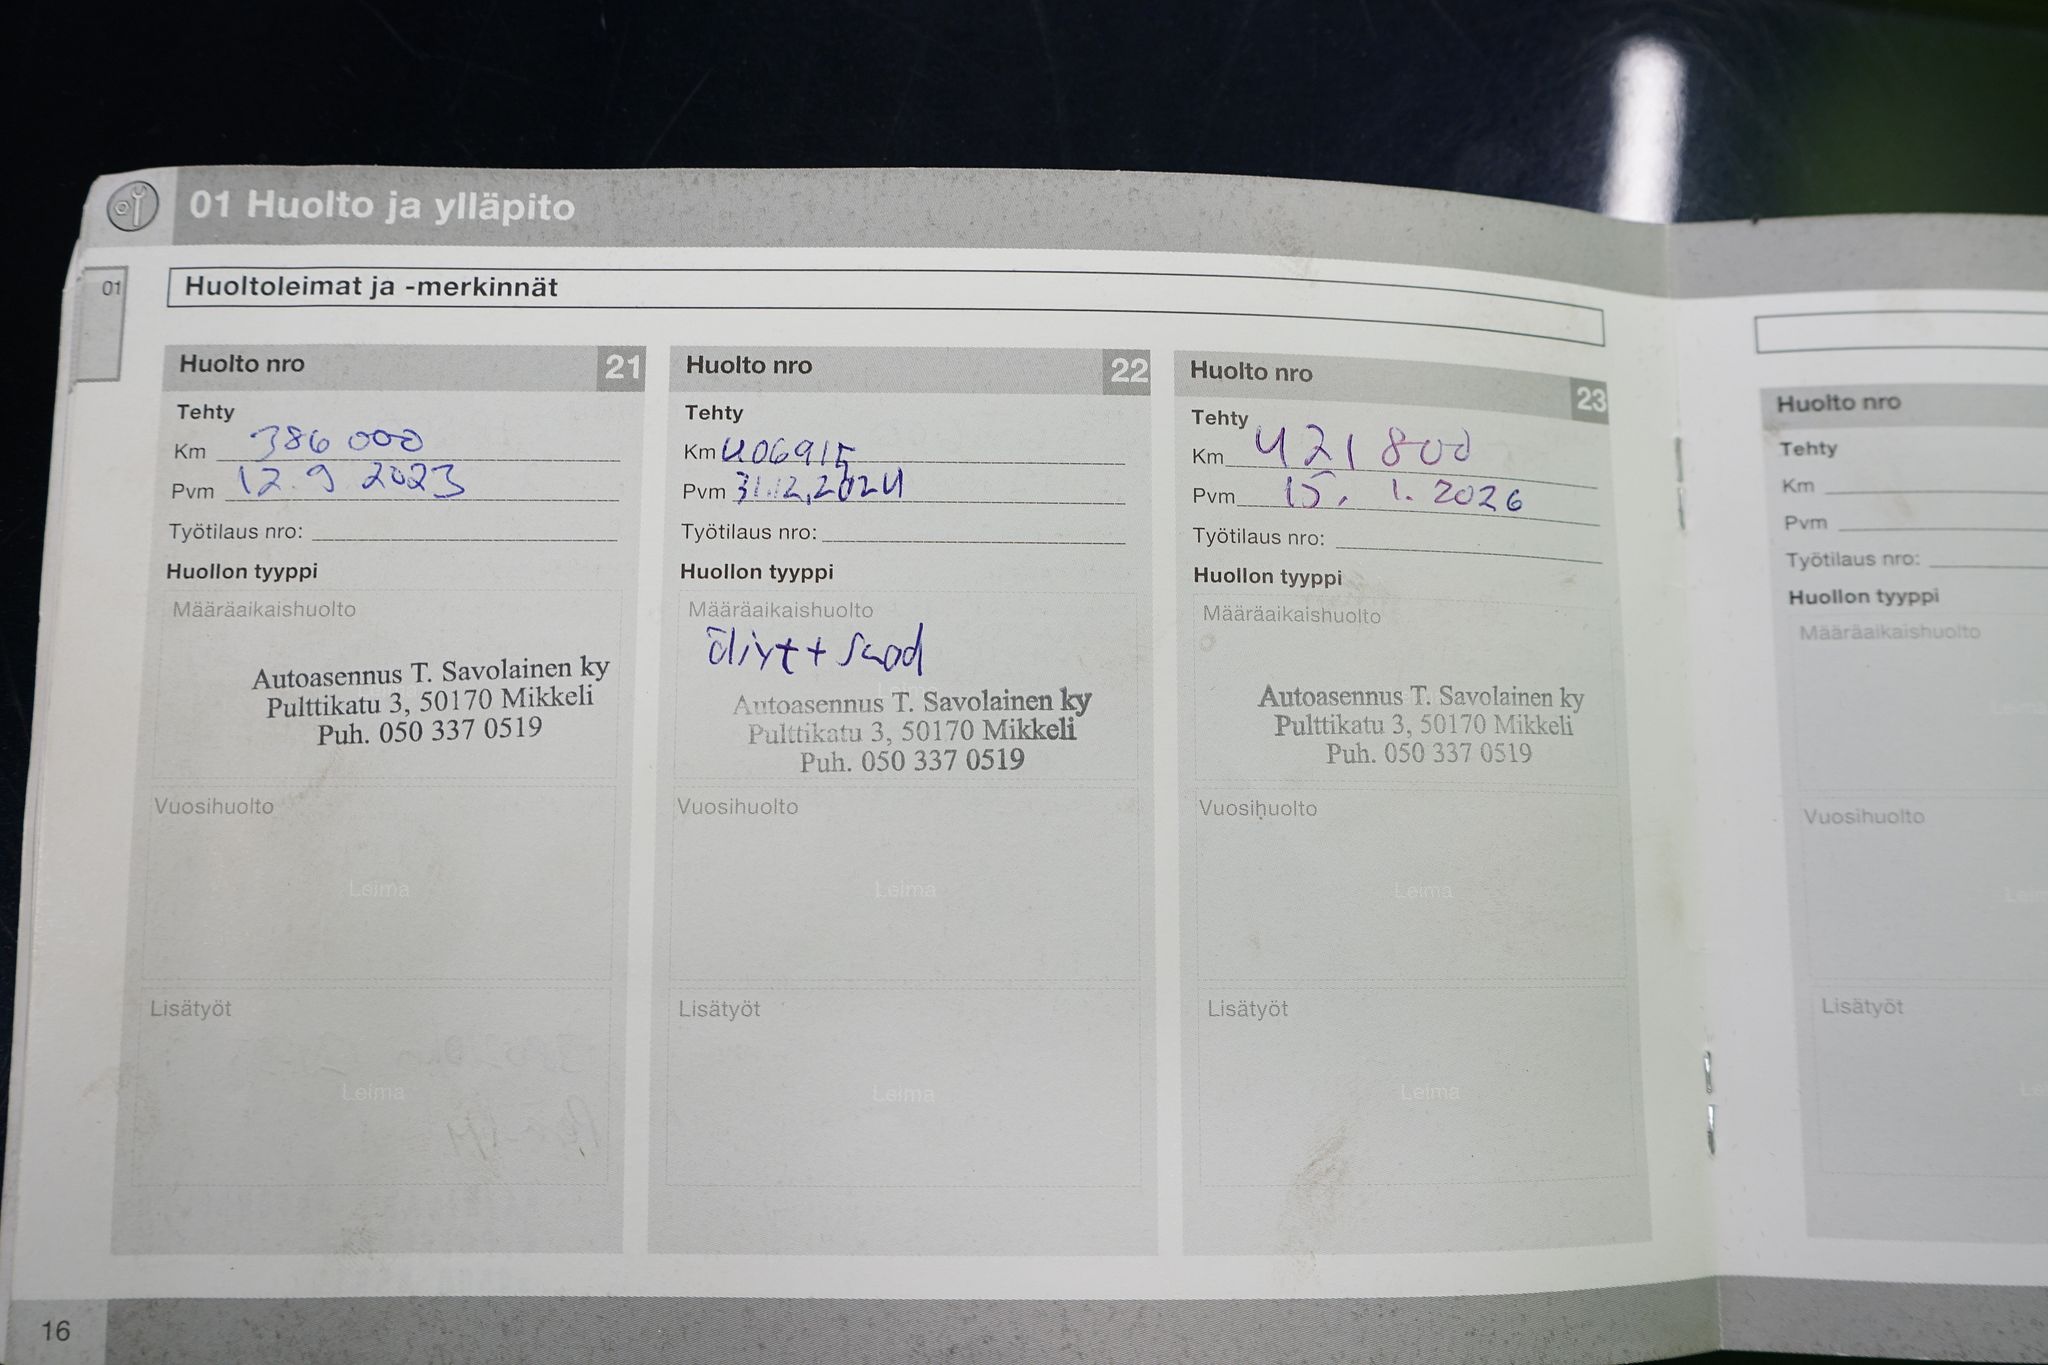 01 Huolto ja ylläpito
01
Huoltoleimat ja -merkinnät
Huolto nro 21
Tehty
Km 386 000
Pvm 12.9 2023
Työtilaus nro:
Huollon tyyppi
Määräaikaishuolto
Autoasennus T. Savolainen ky
Pulttikatu 3, 50170 Mikkeli
Puh. 050 337 0519
Vuosihuolto
Leima
Lisätyöt
Leima
Huolto nro 22
Tehty
Km 406915
Pvm 31.12.2024
Työtilaus nro:
Huollon tyyppi
Määräaikaishuolto
Autoasennus T. Savolainen ky
Pulttikatu 3, 50170 Mikkeli
Puh. 050 337 0519
Vuosihuolto
Leima
Lisätyöt
Leima
Huolto nro 23
Tehty
Km 421 800
Pvm 15. 1. 2026
Työtilaus nro:
Huollon tyyppi
Määräaikaishuolto
Autoasennus T. Savolainen ky
Pulttikatu 3, 50170 Mikkeli
Puh. 050 337 0519
Vuosihuolto
Leima
Lisätyöt
Leima
16
Huolto nro
Tehty
Km
Pvm
Työtilaus nro:
Huollon tyyppi
Määräaikaishuolto
Vuosihuolto
Lisätyöt